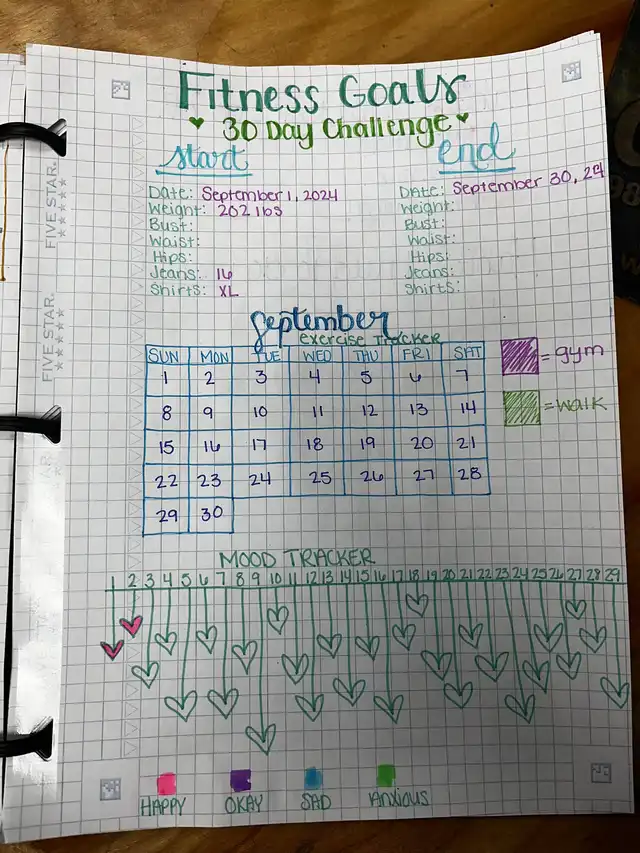 Fitness Goals
30 Day Challenge
start
end
Date: September 1, 2024
Date: September 30, 24
Weight: 202 lbs
Weight:
Bust:
Bust:
Waist:
Waist:
Hips:
Hips:
Jeans: 16
Jeans:
Shirts: XL
Shirts:
FIVE STAR.
FIVE STAR.
September
exercise TRACKER
SUN MON TUE WED THU FRI SAT
1 2 3 4 5 6 7
8 9 10 11 12 13 14
15 16 17 18 19 20 21
22 23 24 25 26 27 28
29 30
= gym
= walk
MOOD TRACKER
1 2 3 4 5 6 7 8 9 10 11 12 13 14 15 16 17 18 19 20 21 22 23 24 25 26 27 28 29
HAPPY OKAY SAD Anxious